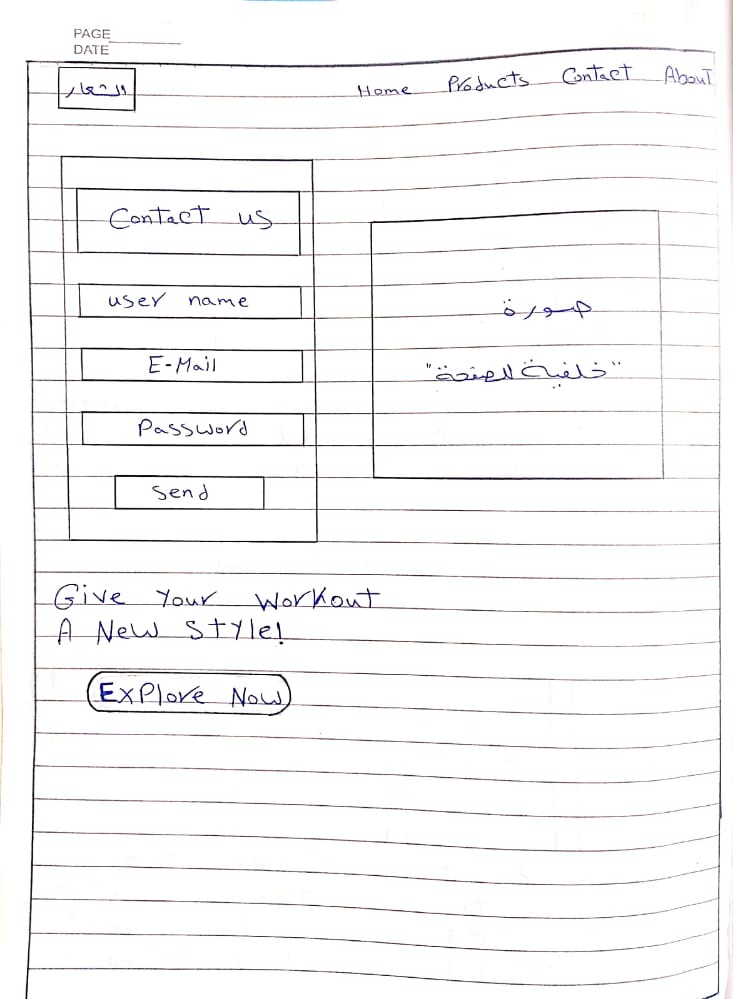 PAGE
DATE
الشعار
Home Products Contact About
Contact us
user name
E-Mail
Password
Send
صورة
"خلفية الصفحة"
Give Your Workout
A New Style!
Explore Now